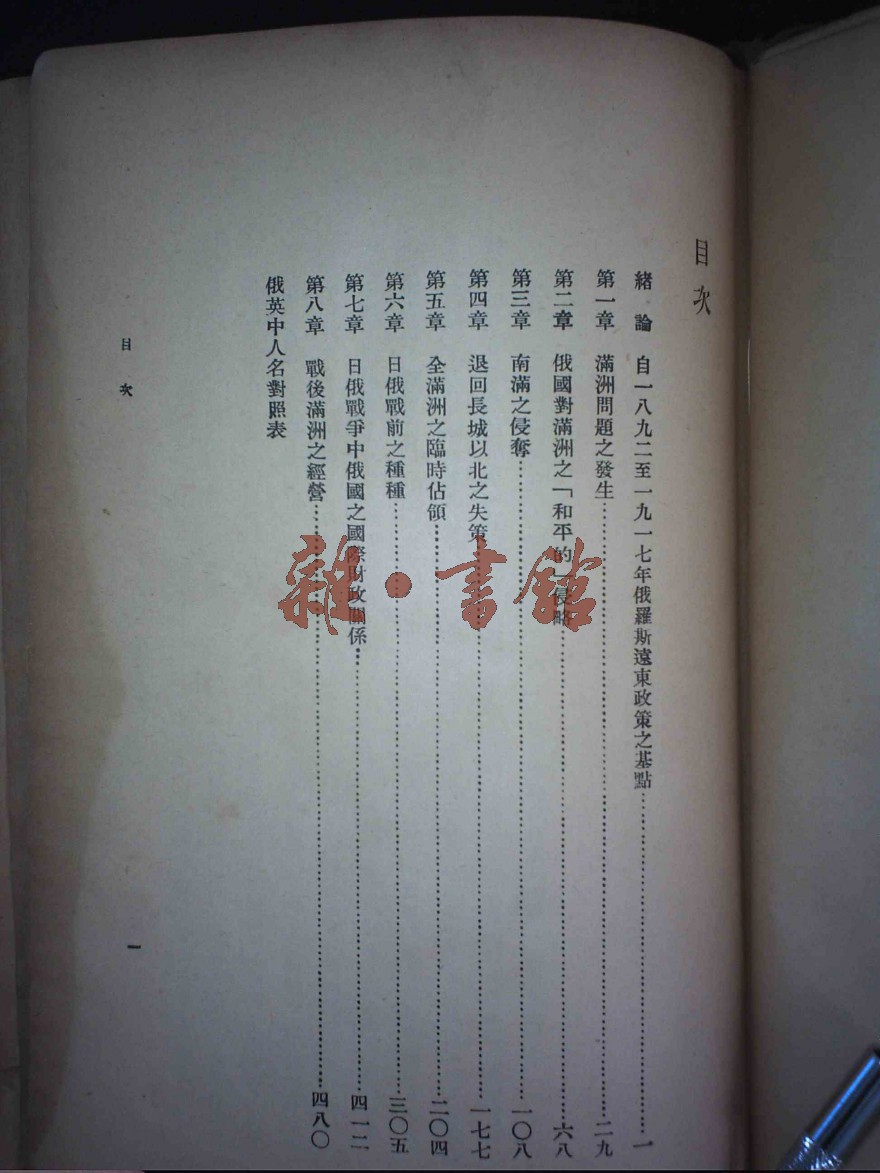 目次
緒論　自一八九二至一九一七年俄羅斯遠東政策之基點……一
第一章　滿洲問題之發生……二九
第二章　俄國對滿洲之「和平的」侵略……六八
第三章　南滿之侵奪……一〇八
第四章　退回長城以北之失策……一七七
第五章　全滿洲之臨時佔領……二〇四
第六章　日俄戰前之種種……三〇五
第七章　日俄戰爭中俄國之國際財政關係……四一二
第八章　戰後滿洲之經營……四八〇
俄英中人名對照表
目次
一
雜·書館